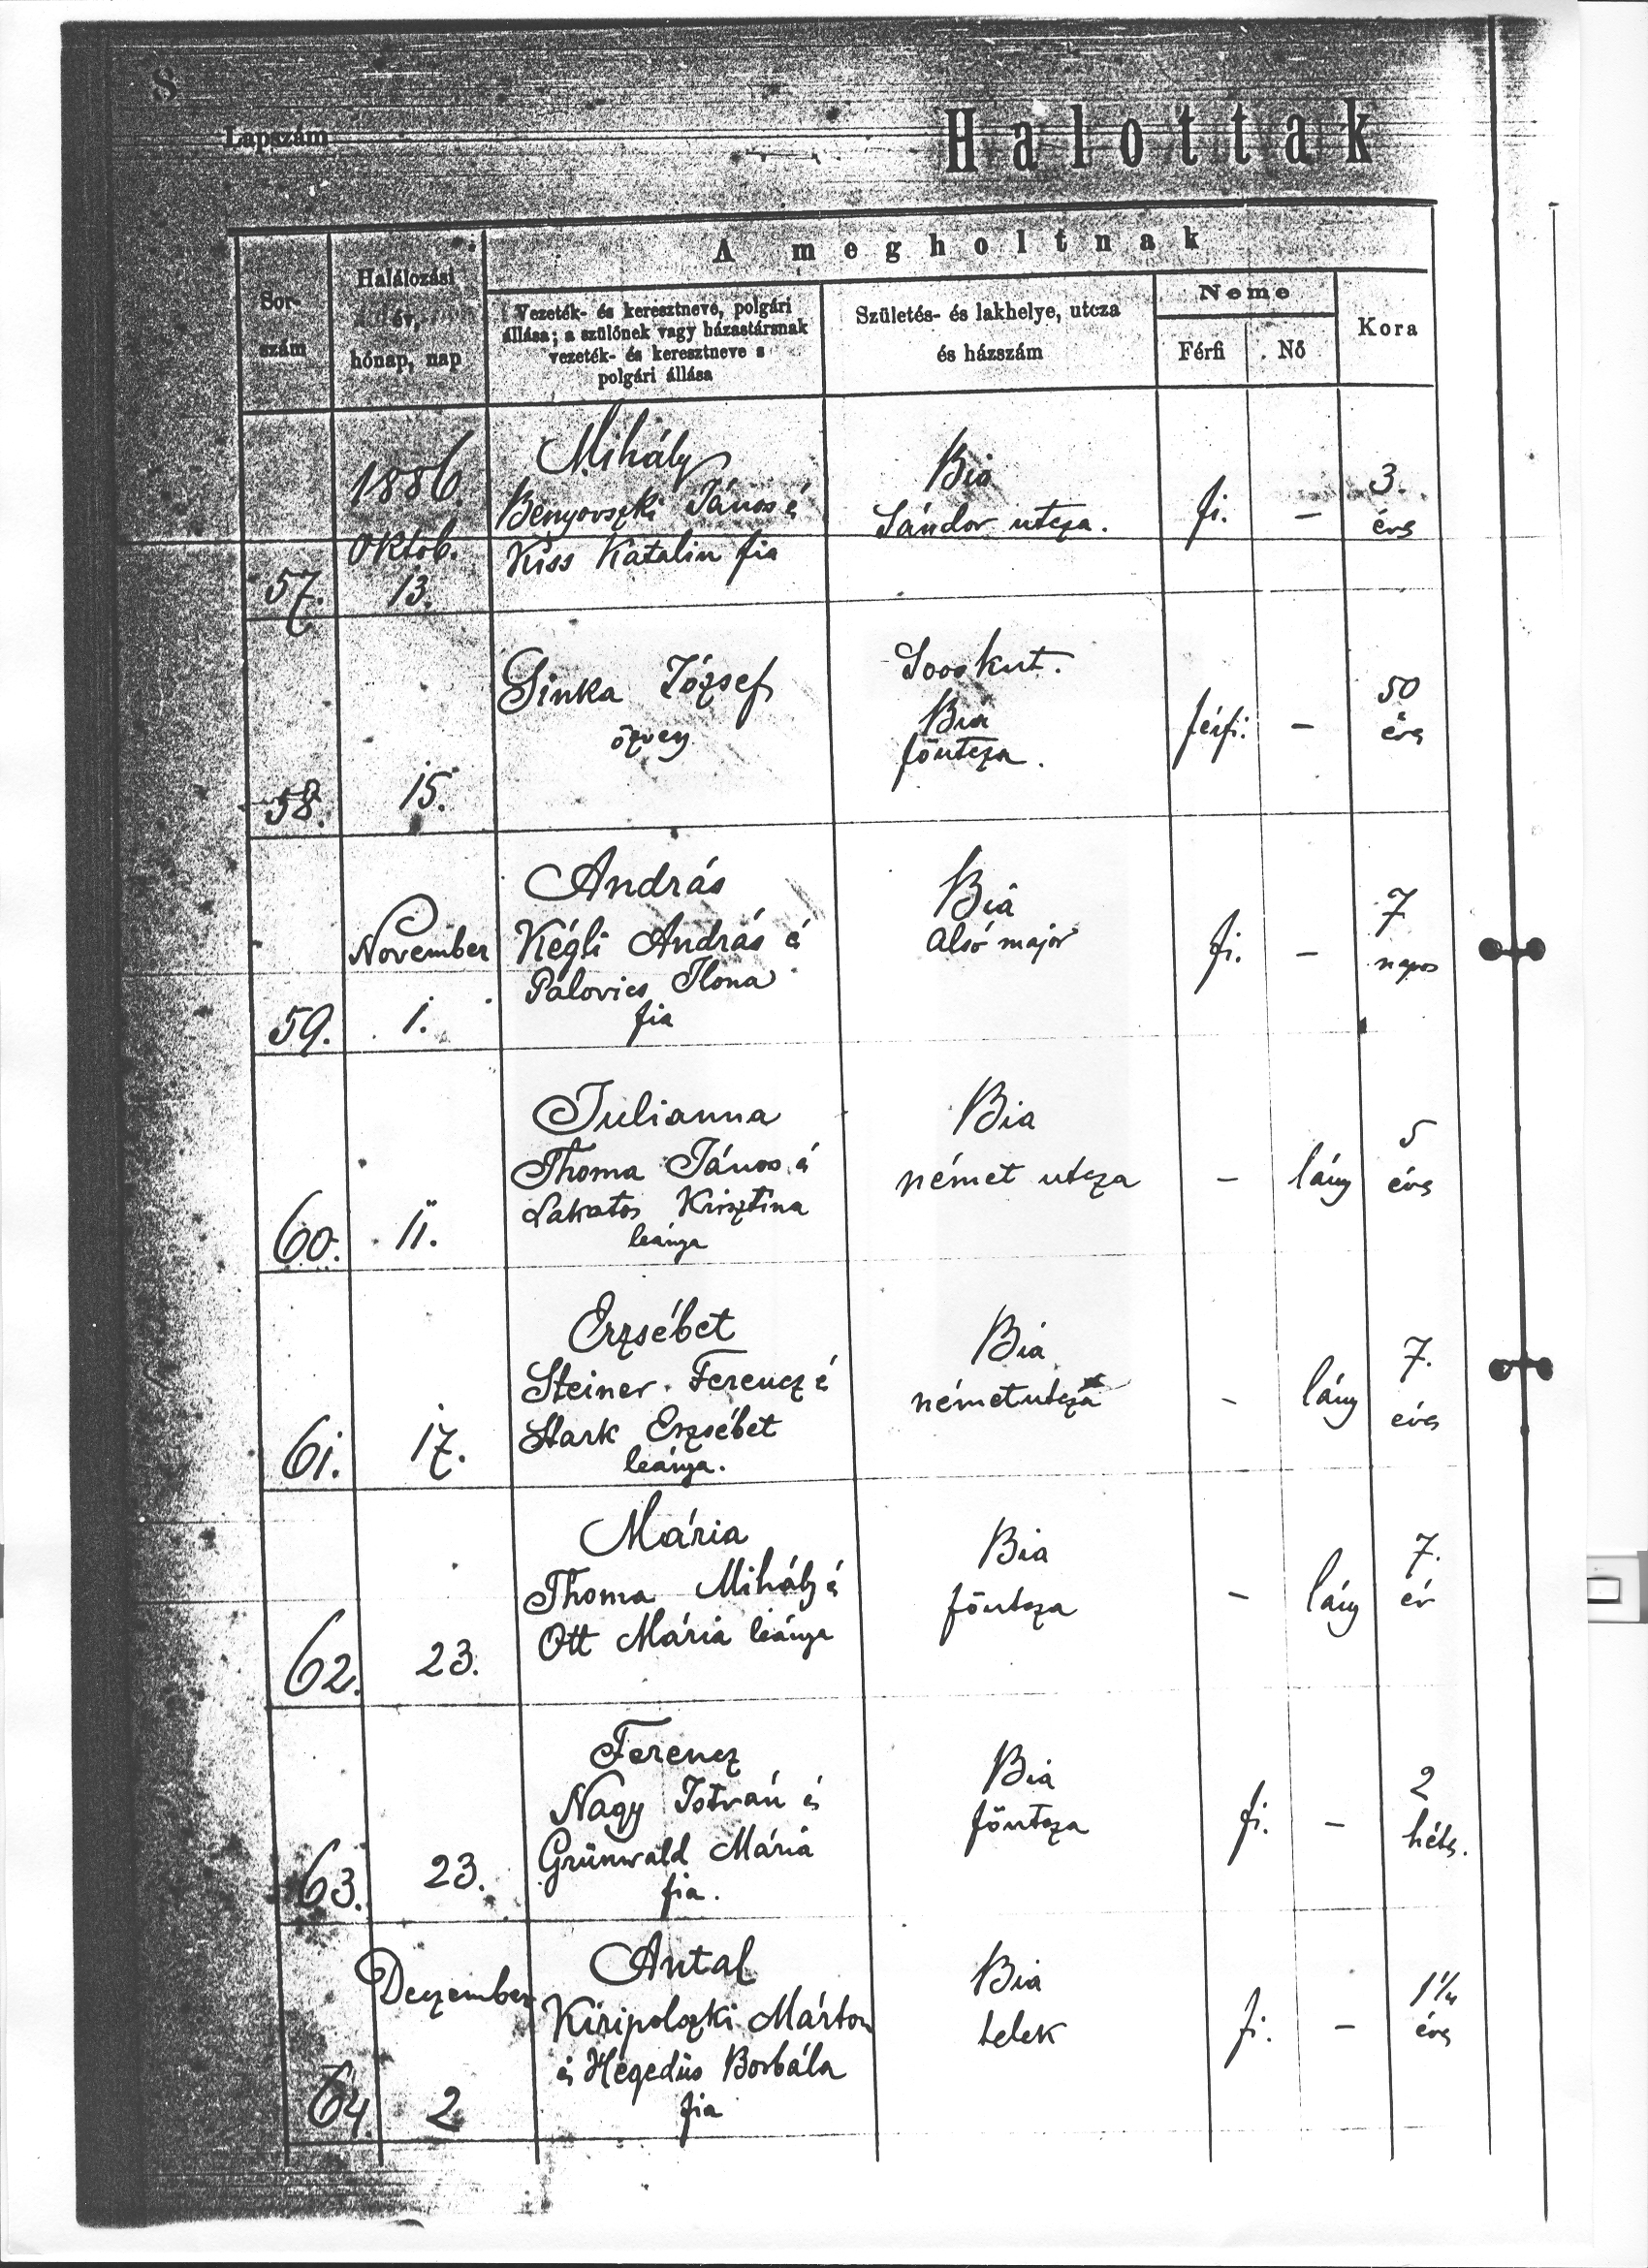 8
Lapszám
Halottak
A megholtnak
Sor-
szám
Halálozási
év,
hónap, nap
Vezeték- és keresztneve, polgári
állása; a szülőnek vagy házastársnak
vezeték- és keresztneve s
polgári állása
Születés- és lakhelye, utcza
és házszám
Neme
Férfi
Nő
Kora
57.
1886
Oktob.
13.
Mihály
Benyovszki János é
Kiss Katalin fia
Bia
Sándor utcza.
fi.
–
3.
éves
58.
15.
Sinka József
özvegy
Sooskut.
Bia
főutcza.
férfi.
–
50
éves
59.
November
1.
András
Kégli András é
Palovics Ilona
fia
Bia
Alsó major
fi.
–
7
napos
60.
11.
Julianna
Thoma János é
Lakatos Krisztina
leánya
Bia
német utcza
–
lány
5
éves
61.
17.
Erzsébet
Steiner Ferencz é
Stark Erzsébet
leánya.
Bia
németutcza
–
lány
7.
éves
62.
23.
Mária
Thoma Mihály é
Ott Mária leánya
Bia
főutcza
–
lány
7.
év
63.
23.
Ferencz
Nagy István és
Grünwald Mária
fia.
Bia
főutcza
fi.
–
2
hétes.
64.
Deczember
2
Antal
Kiripolszki Márton
és Hegedüs Borbála
fia
Bia
telek
fi.
–
1 1/4
éves